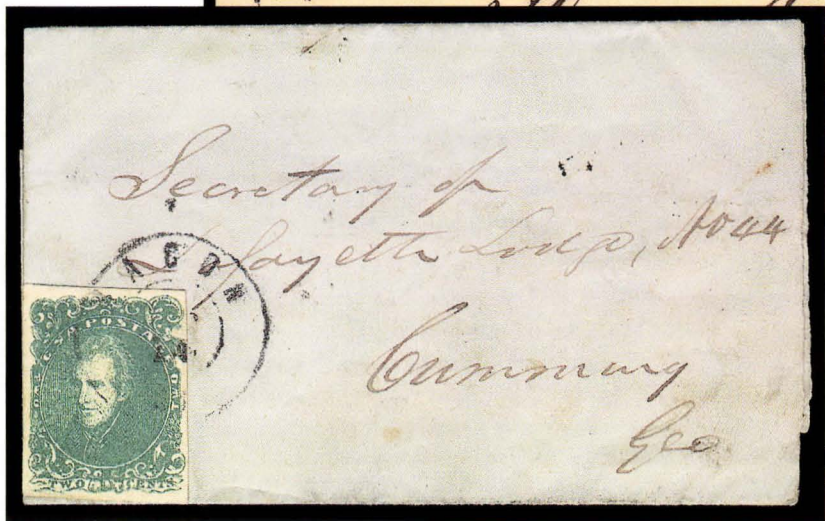 Secretary of
Lafayette Lodge, No 44
Cumming
Geo
ACON
TWO
TWO CENTS